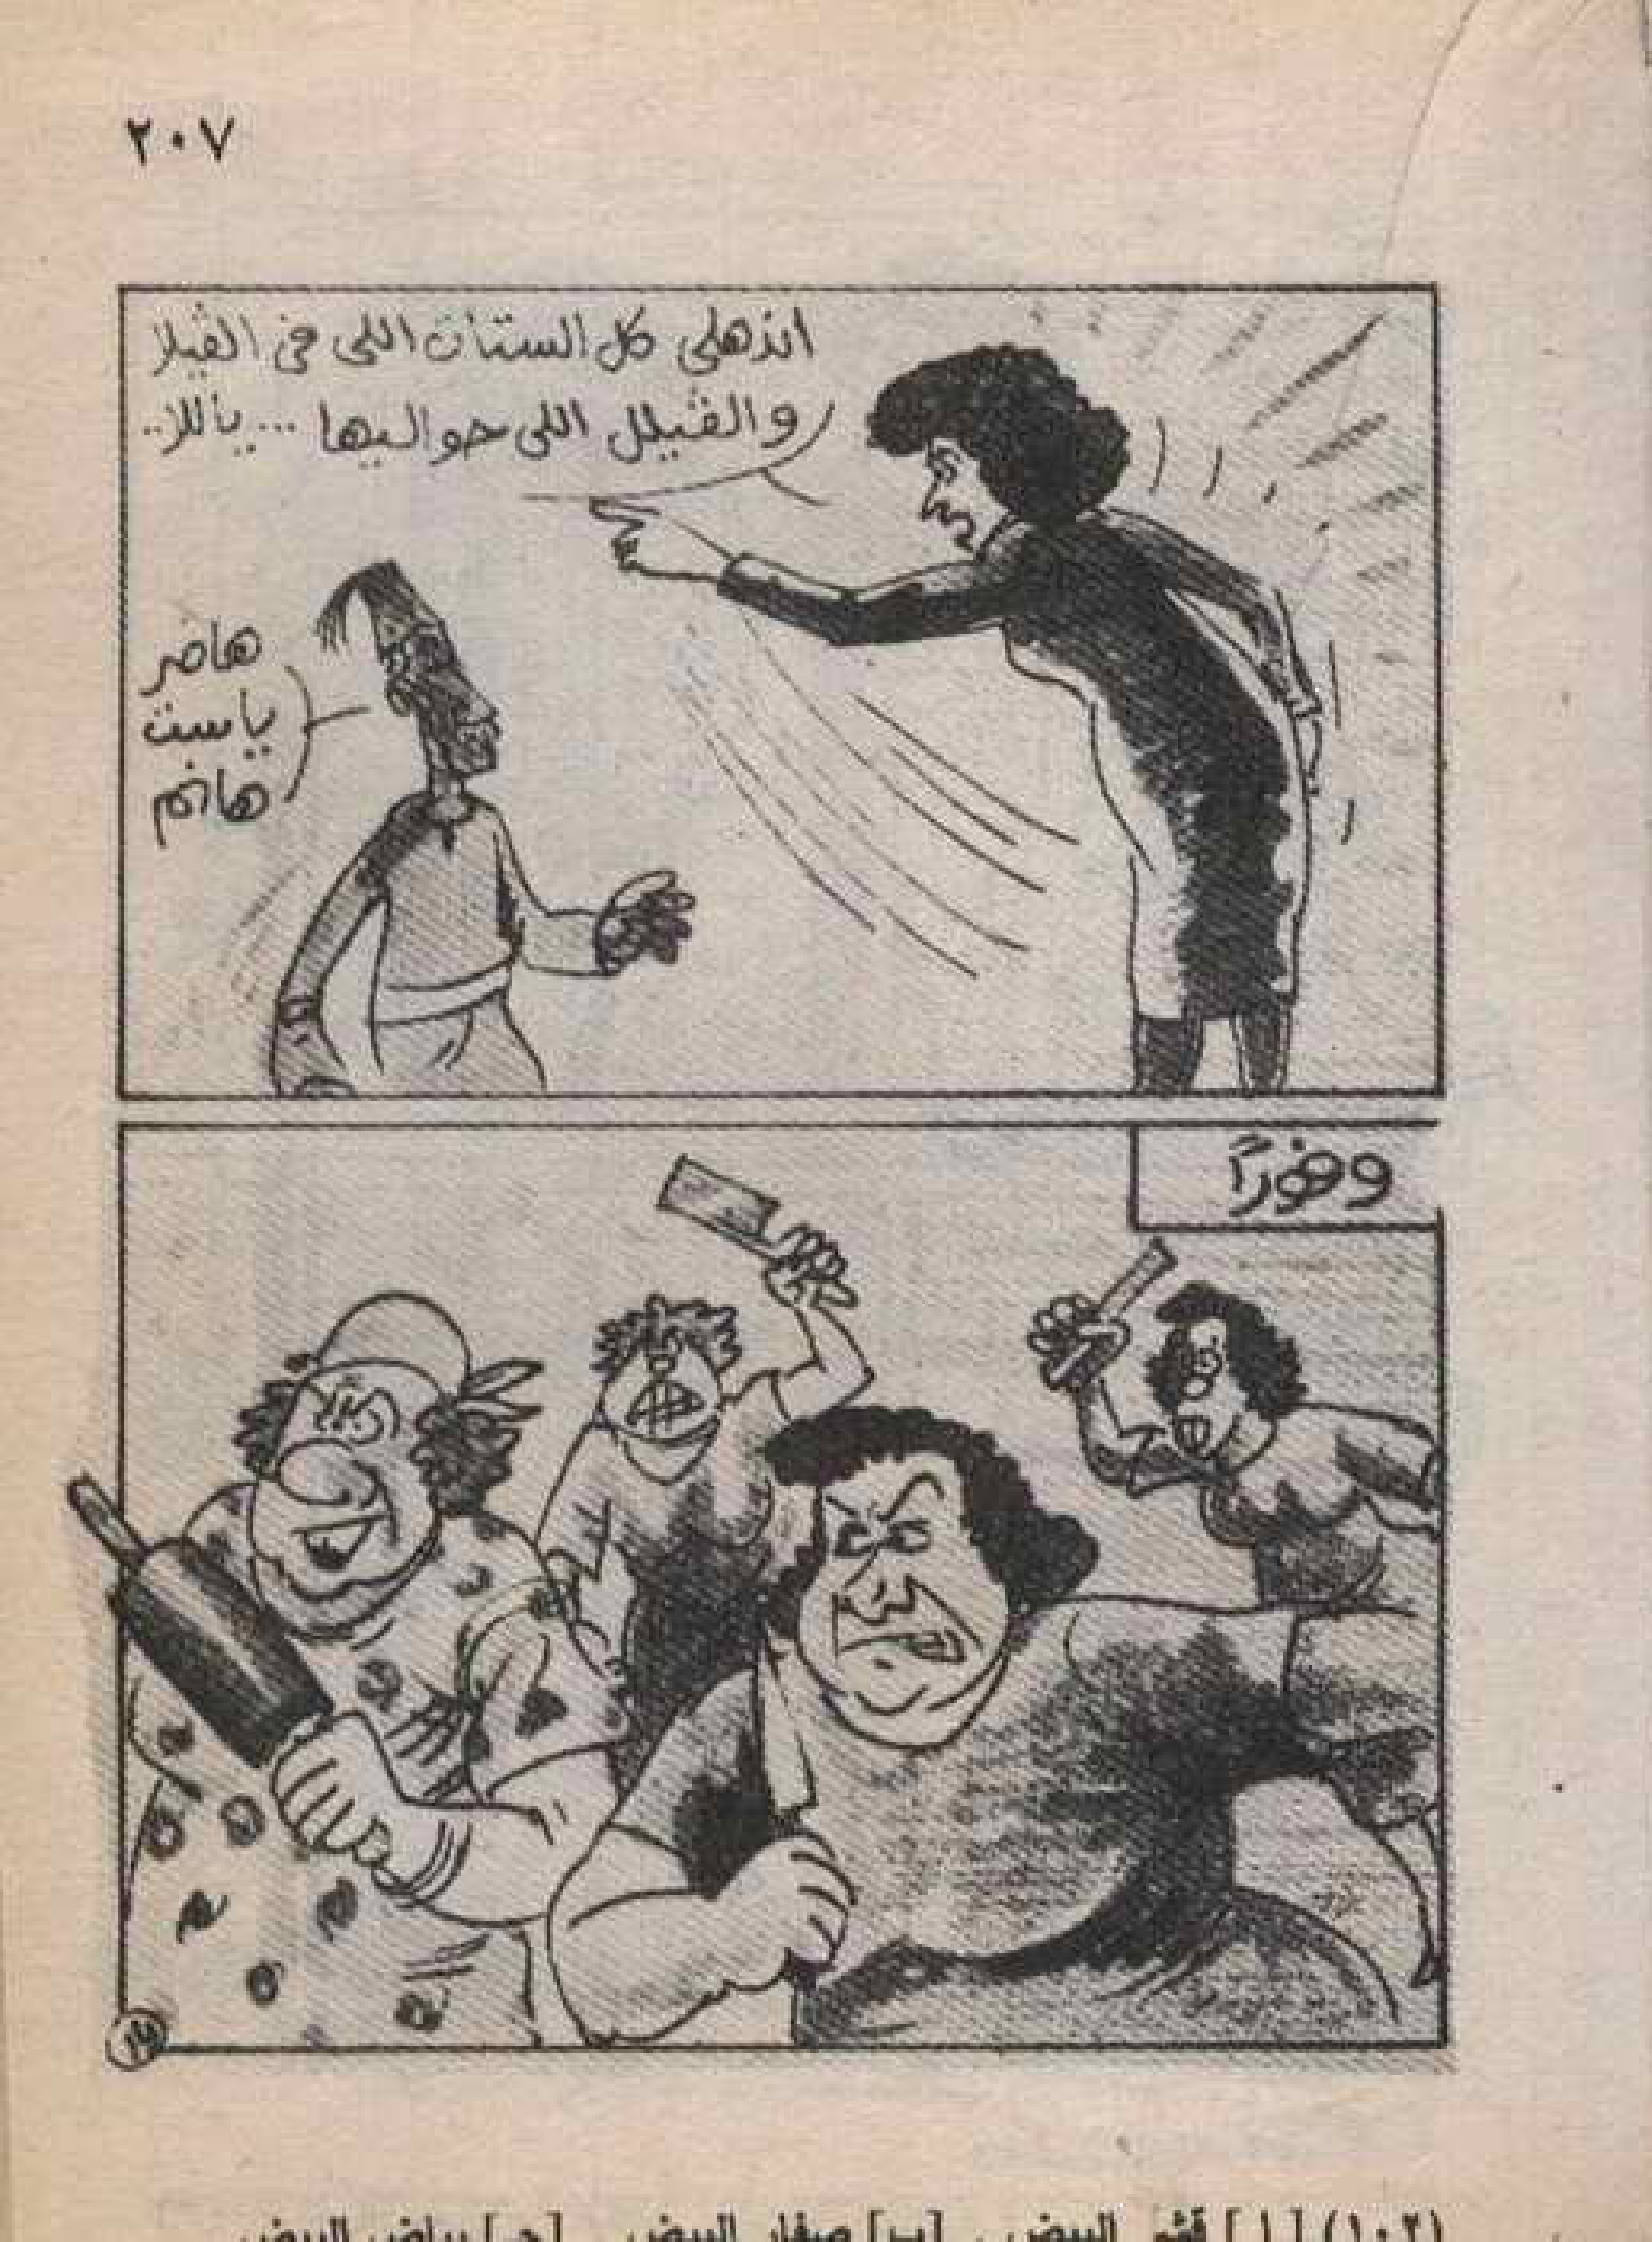 ٢٠٧
اندهلى كل الستات اللى فى الڤيلا
والڤيلل اللى حواليها ... ياللا..
حاضر
ياست
هانم
وفورًا
(١٠٢) [ ا ] قشر البيض . [ب] صفار البيض . [جـ] بياض البيض .